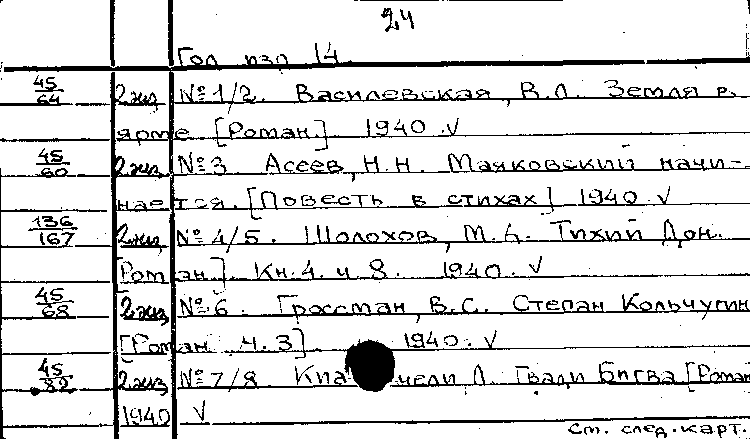 24
Год изд 14
45/64 2жз №1/2. Василевская, В.Л. Земля в
ярме [Роман.] 1940. V
45/60 2жз №3 Асеев, Н.Н. Маяковский начи-
нается. [Повесть в стихах] 1940 V
136/167 2жз №4/5. Шолохов, М.А. Тихий Дон.
[Роман.] Кн.4. ч 8. 1940. V
45/68 2жз №6. Гроссман, В.С. Степан Кольчугин
[Роман. Ч.3] 1940. V
45/82 2жз №7/8. Киа чели Л. Гвади Бигва [Роман
1940 V
См. след. карт.